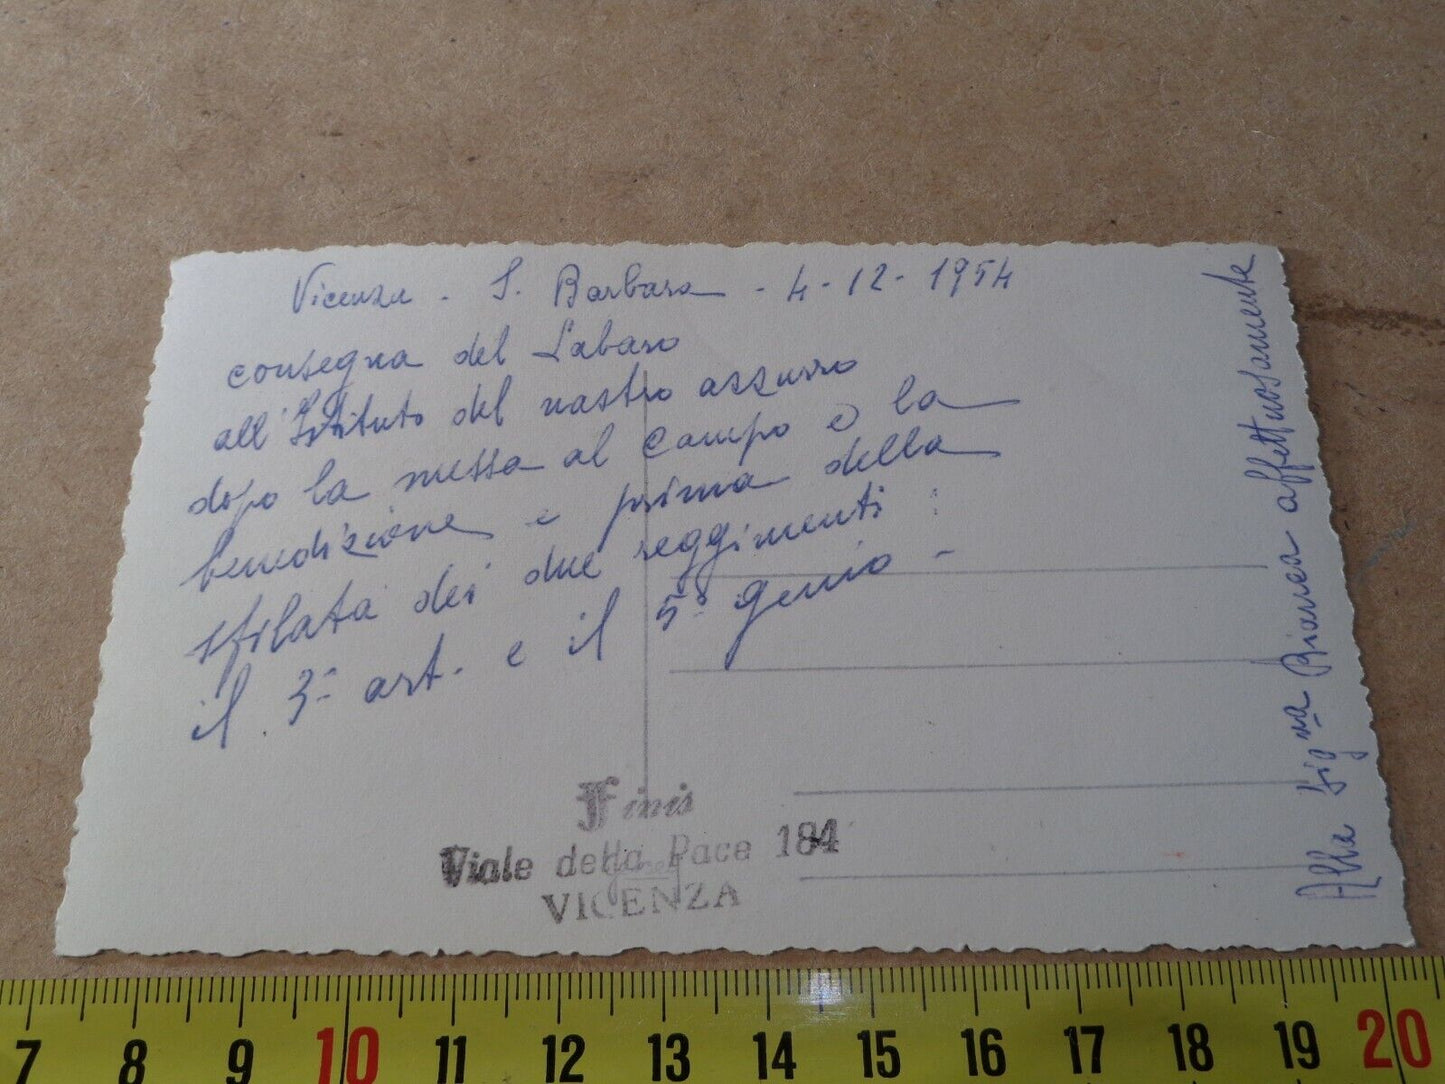 Vicenza - S. Barbara - 4-12-1954
consegna del Labaro
all'Istituto del nastro azzurro
dopo la messa al campo e la
benedizione e prima della
sfilata dei due reggimenti :
il 3° art. e il 5° genio -
Alla Sig.na Bianca affettuosamente
Finis
Viale della Pace 184
VICENZA
7 8 9 10 11 12 13 14 15 16 17 18 19 20